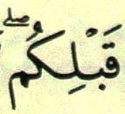 قَبْلِكُمْ ۖ